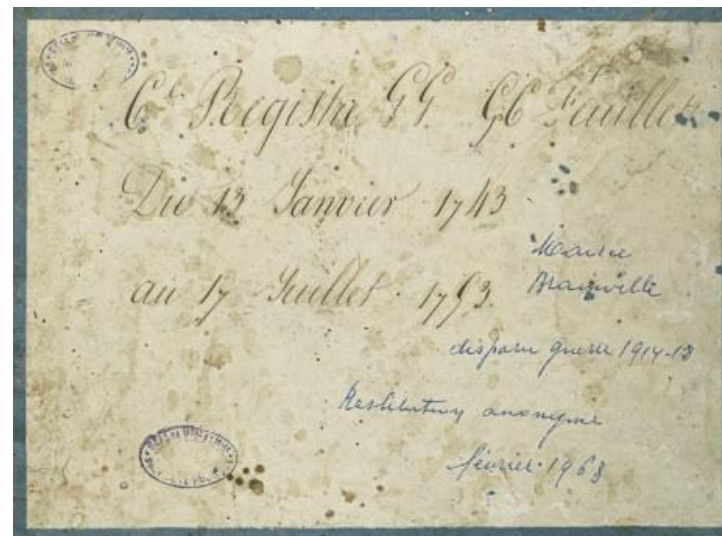 6e Registre GG. 96 Feuillets
Du 13 Janvier 1743
au 17 Juillet 1793.
Mairie
Brainville
disparu guerre 1914-18
Restitution anonyme
février 1968